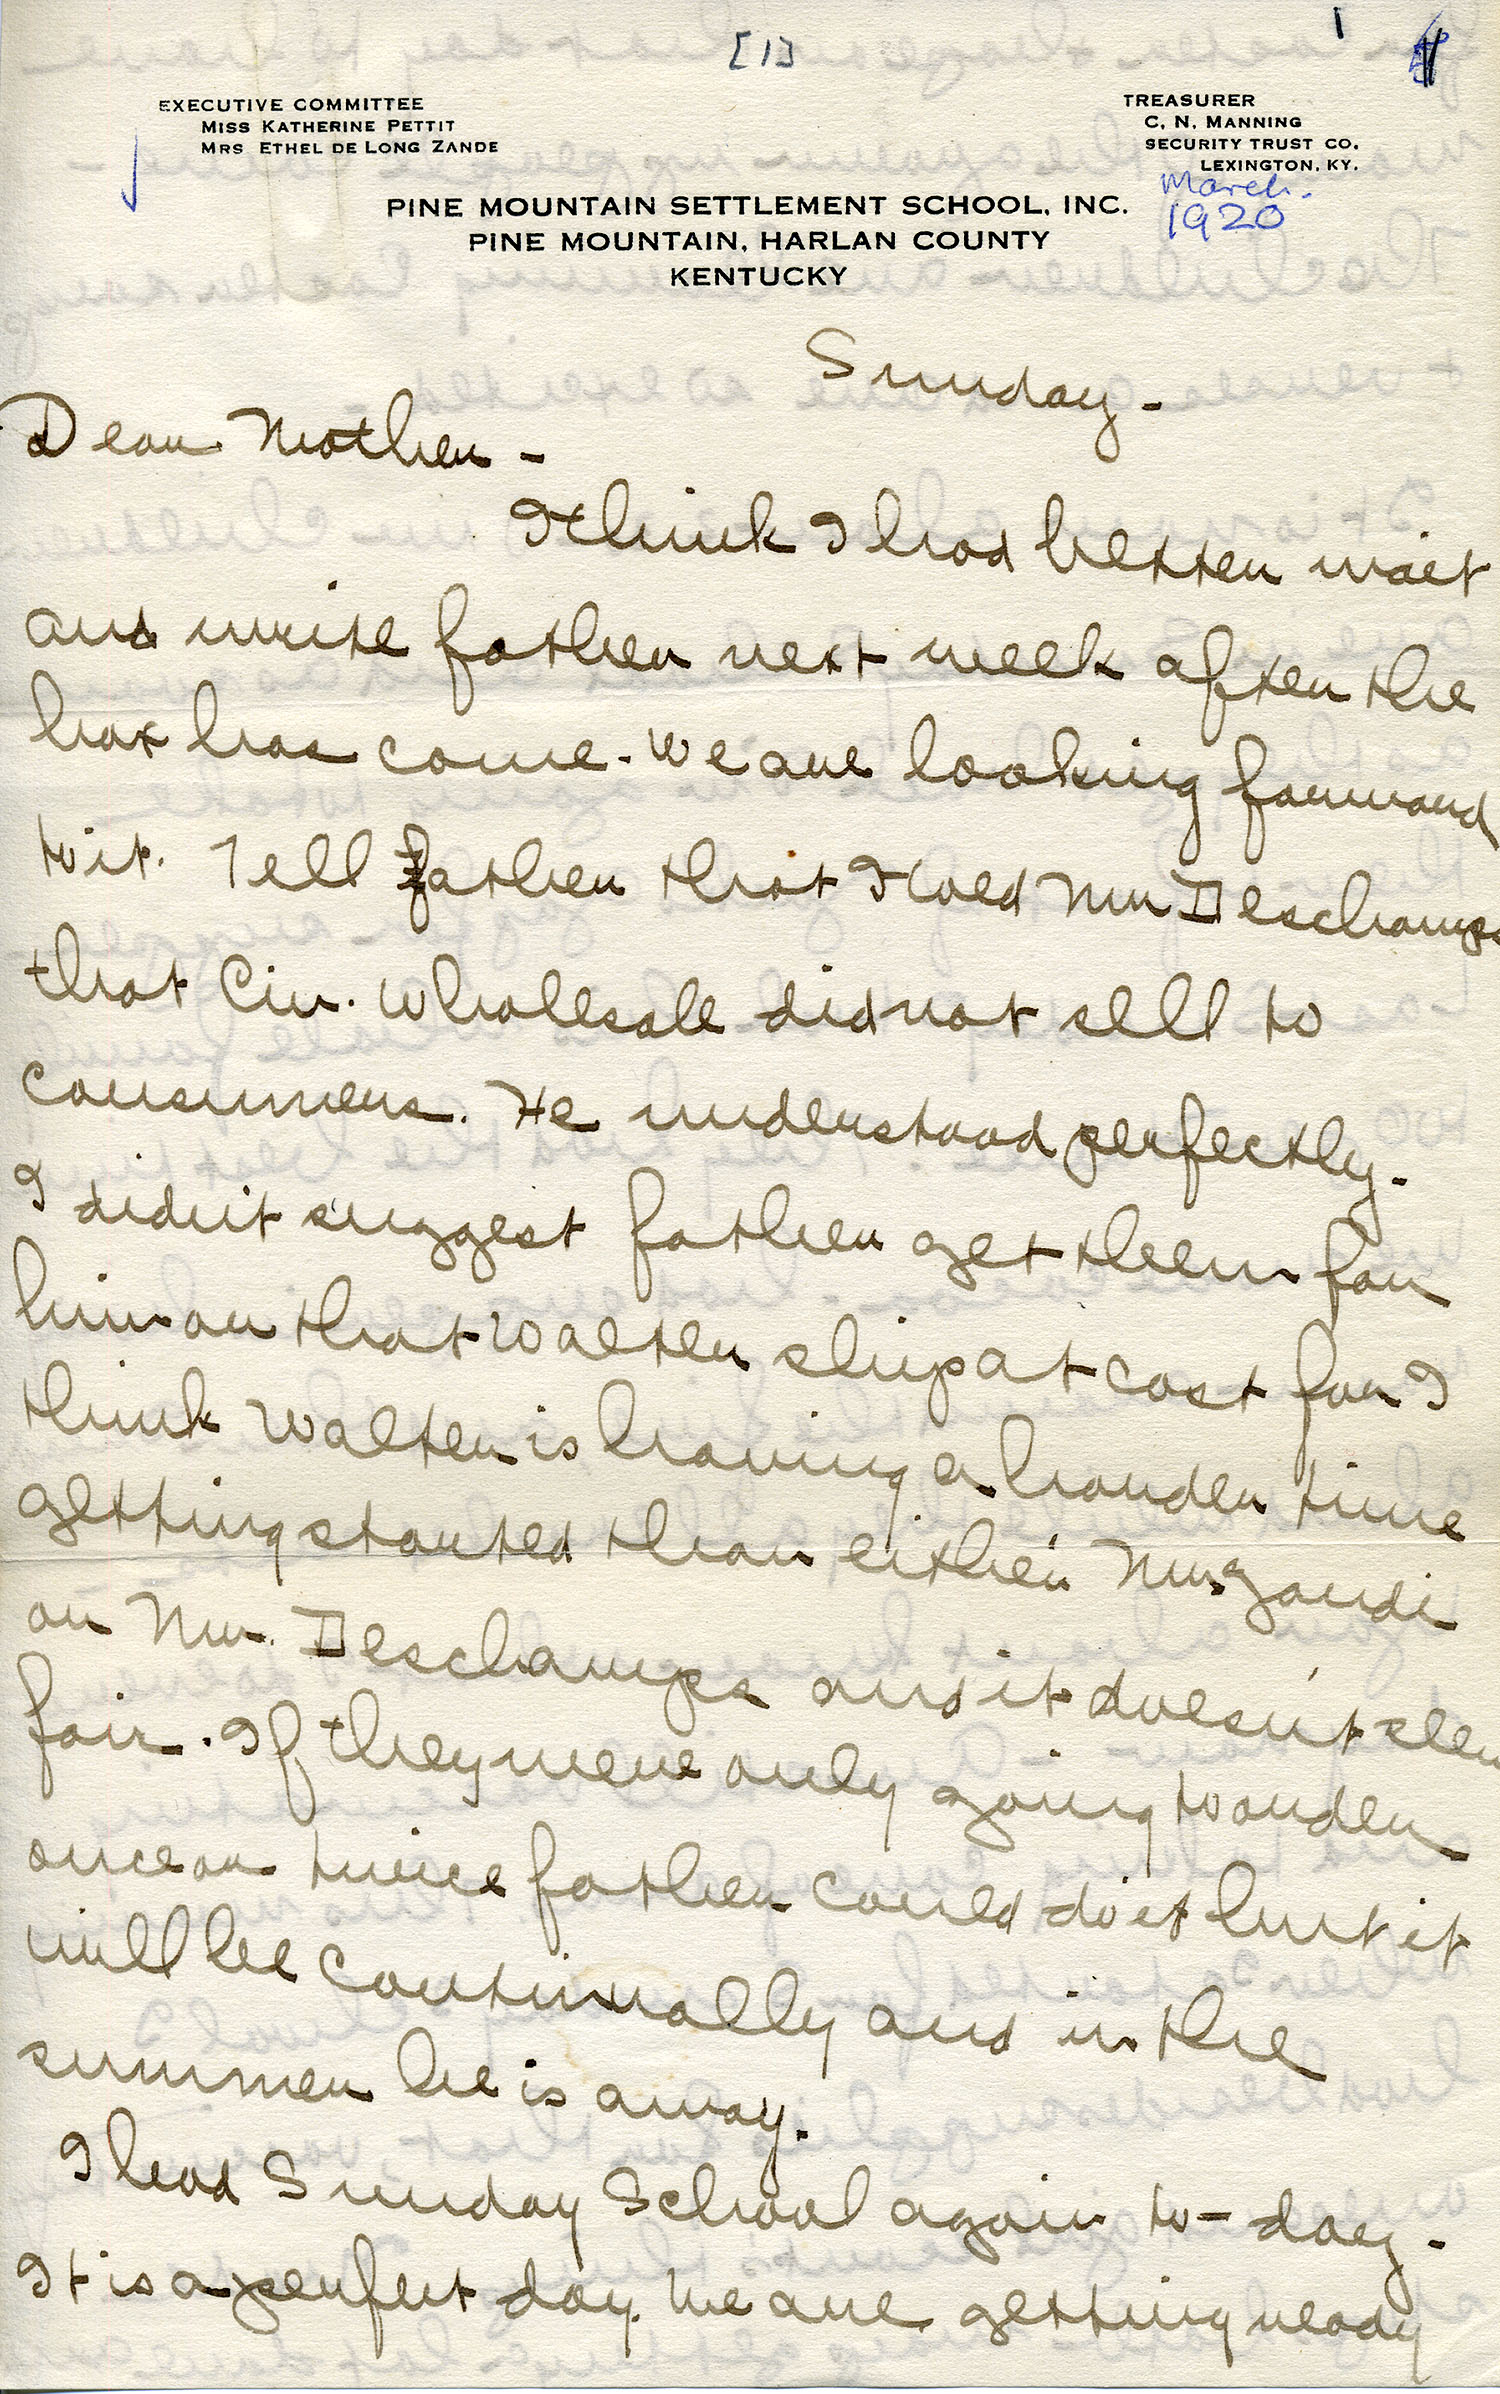 [1]
1
EXECUTIVE COMMITTEE
MISS KATHERINE PETTIT
MRS ETHEL DE LONG ZANDE
TREASURER
C. N. MANNING
SECURITY TRUST CO.
LEXINGTON, KY.
March.
1920
PINE MOUNTAIN SETTLEMENT SCHOOL, INC.
PINE MOUNTAIN, HARLAN COUNTY
KENTUCKY
Sunday -
Dear Mother -
I think I had better wait
and write father next week after the
box has come. We are looking forward
to it. Tell father that I told Mr Deschamps
that Cin. Wholesale did not sell to
consumers. He understood perfectly.
I didn't suggest father get them for
him or that Walter ship at cost for I
think Walter is having a harder time
getting started than either Mr Zandi
or Mr. Deschamps and it doesn't seem
fair. If they were only going to order
once or twice father could do it but it
will be continually and in the
summer he is away.
I had Sunday School again to-day.
It is a perfect day. We are getting ready